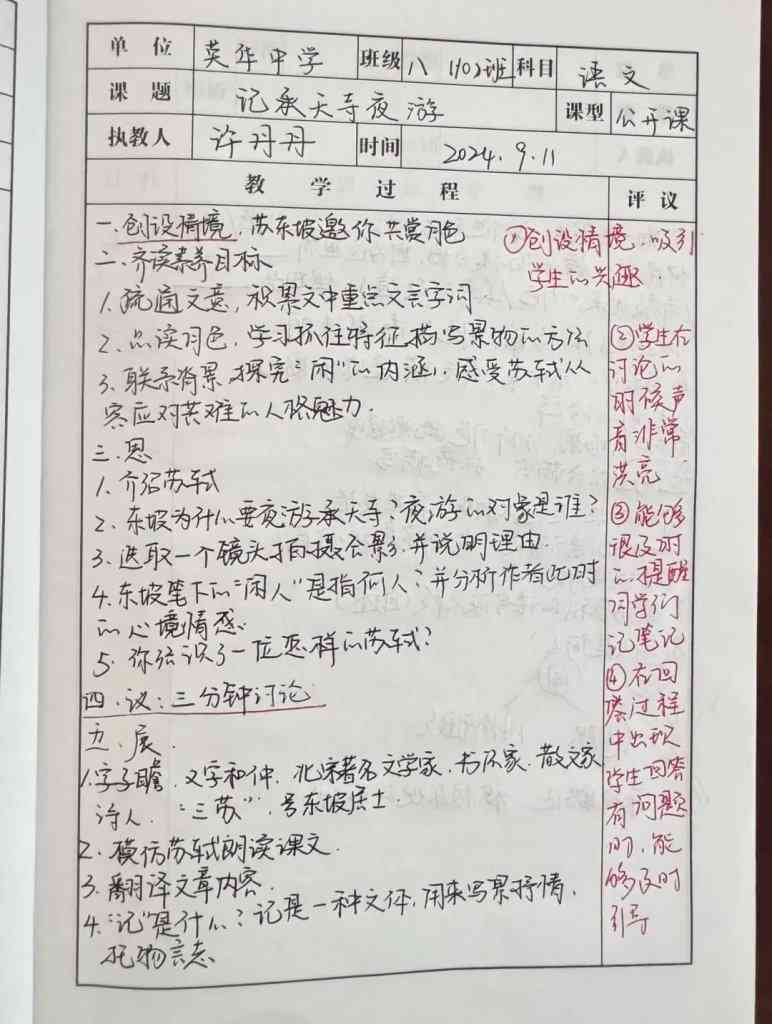 单 位 英华中学 班级 八 1102班 科目 语文
课 题 记承天寺夜游 课型 公开课
执教人 许丹丹 时间 2024.9.11
教 学 过 程 评 议
一.创设情境,苏东坡邀你共赏月色
二.齐读素养目标
1.疏通文意,积累文中重点文言字词
2.品读月色,学习抓住特征描写景物的方法
3.联系背景,探究“闲”的内涵,感受苏轼从
容应对苦难的人格魅力.
三.思
1.介绍苏轼
2.东坡为什么要夜游承天寺?夜游的对象是谁?
3.选取一个镜头拍摄合影,并说明理由.
4.东坡笔下的“闲人”是指何人?并分析作者此时
的心境情感.
5.你结识了一位怎样的苏轼?
四.议:三分钟讨论
五.展.
1.字子瞻,又字和仲,北宋著名文学家,书法家,散文家
诗人.“三苏”,号东坡居士.
2.模仿苏轼朗读课文.
3.翻译文章内容.
4.“记”是什么?记是一种文体,用来写景抒情,
托物言志
①创设情境,吸引
学生的兴趣.
②学生在
讨论的
时候声
音非常
洪亮
③能够
很及时
的提醒
同学们
记笔记
④在回
答过程
中出现
学生回答
有问题
时,能
够及时
引导